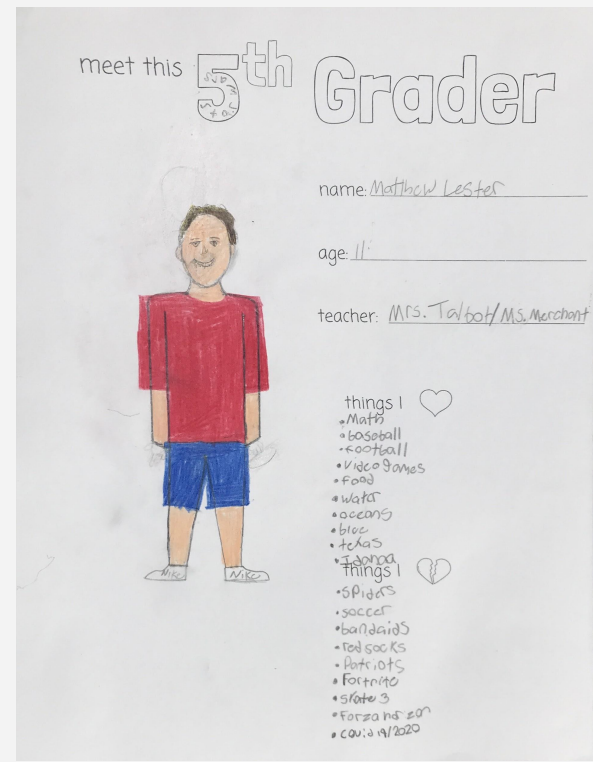 meet this 5th Grader
name: Matthew Lester
age: 11
teacher: Mrs. Talbot/Ms. Merchant
things I
• Math
• baseball
• football
• Video games
• food
• water
• oceans
• blue
• texas
things I
• SPiders
• soccer
• bandaids
• red socks
• Patriots
• Fortnite
• Skate 3
• Forza horizon
• covid 19/2020
Nike Nike